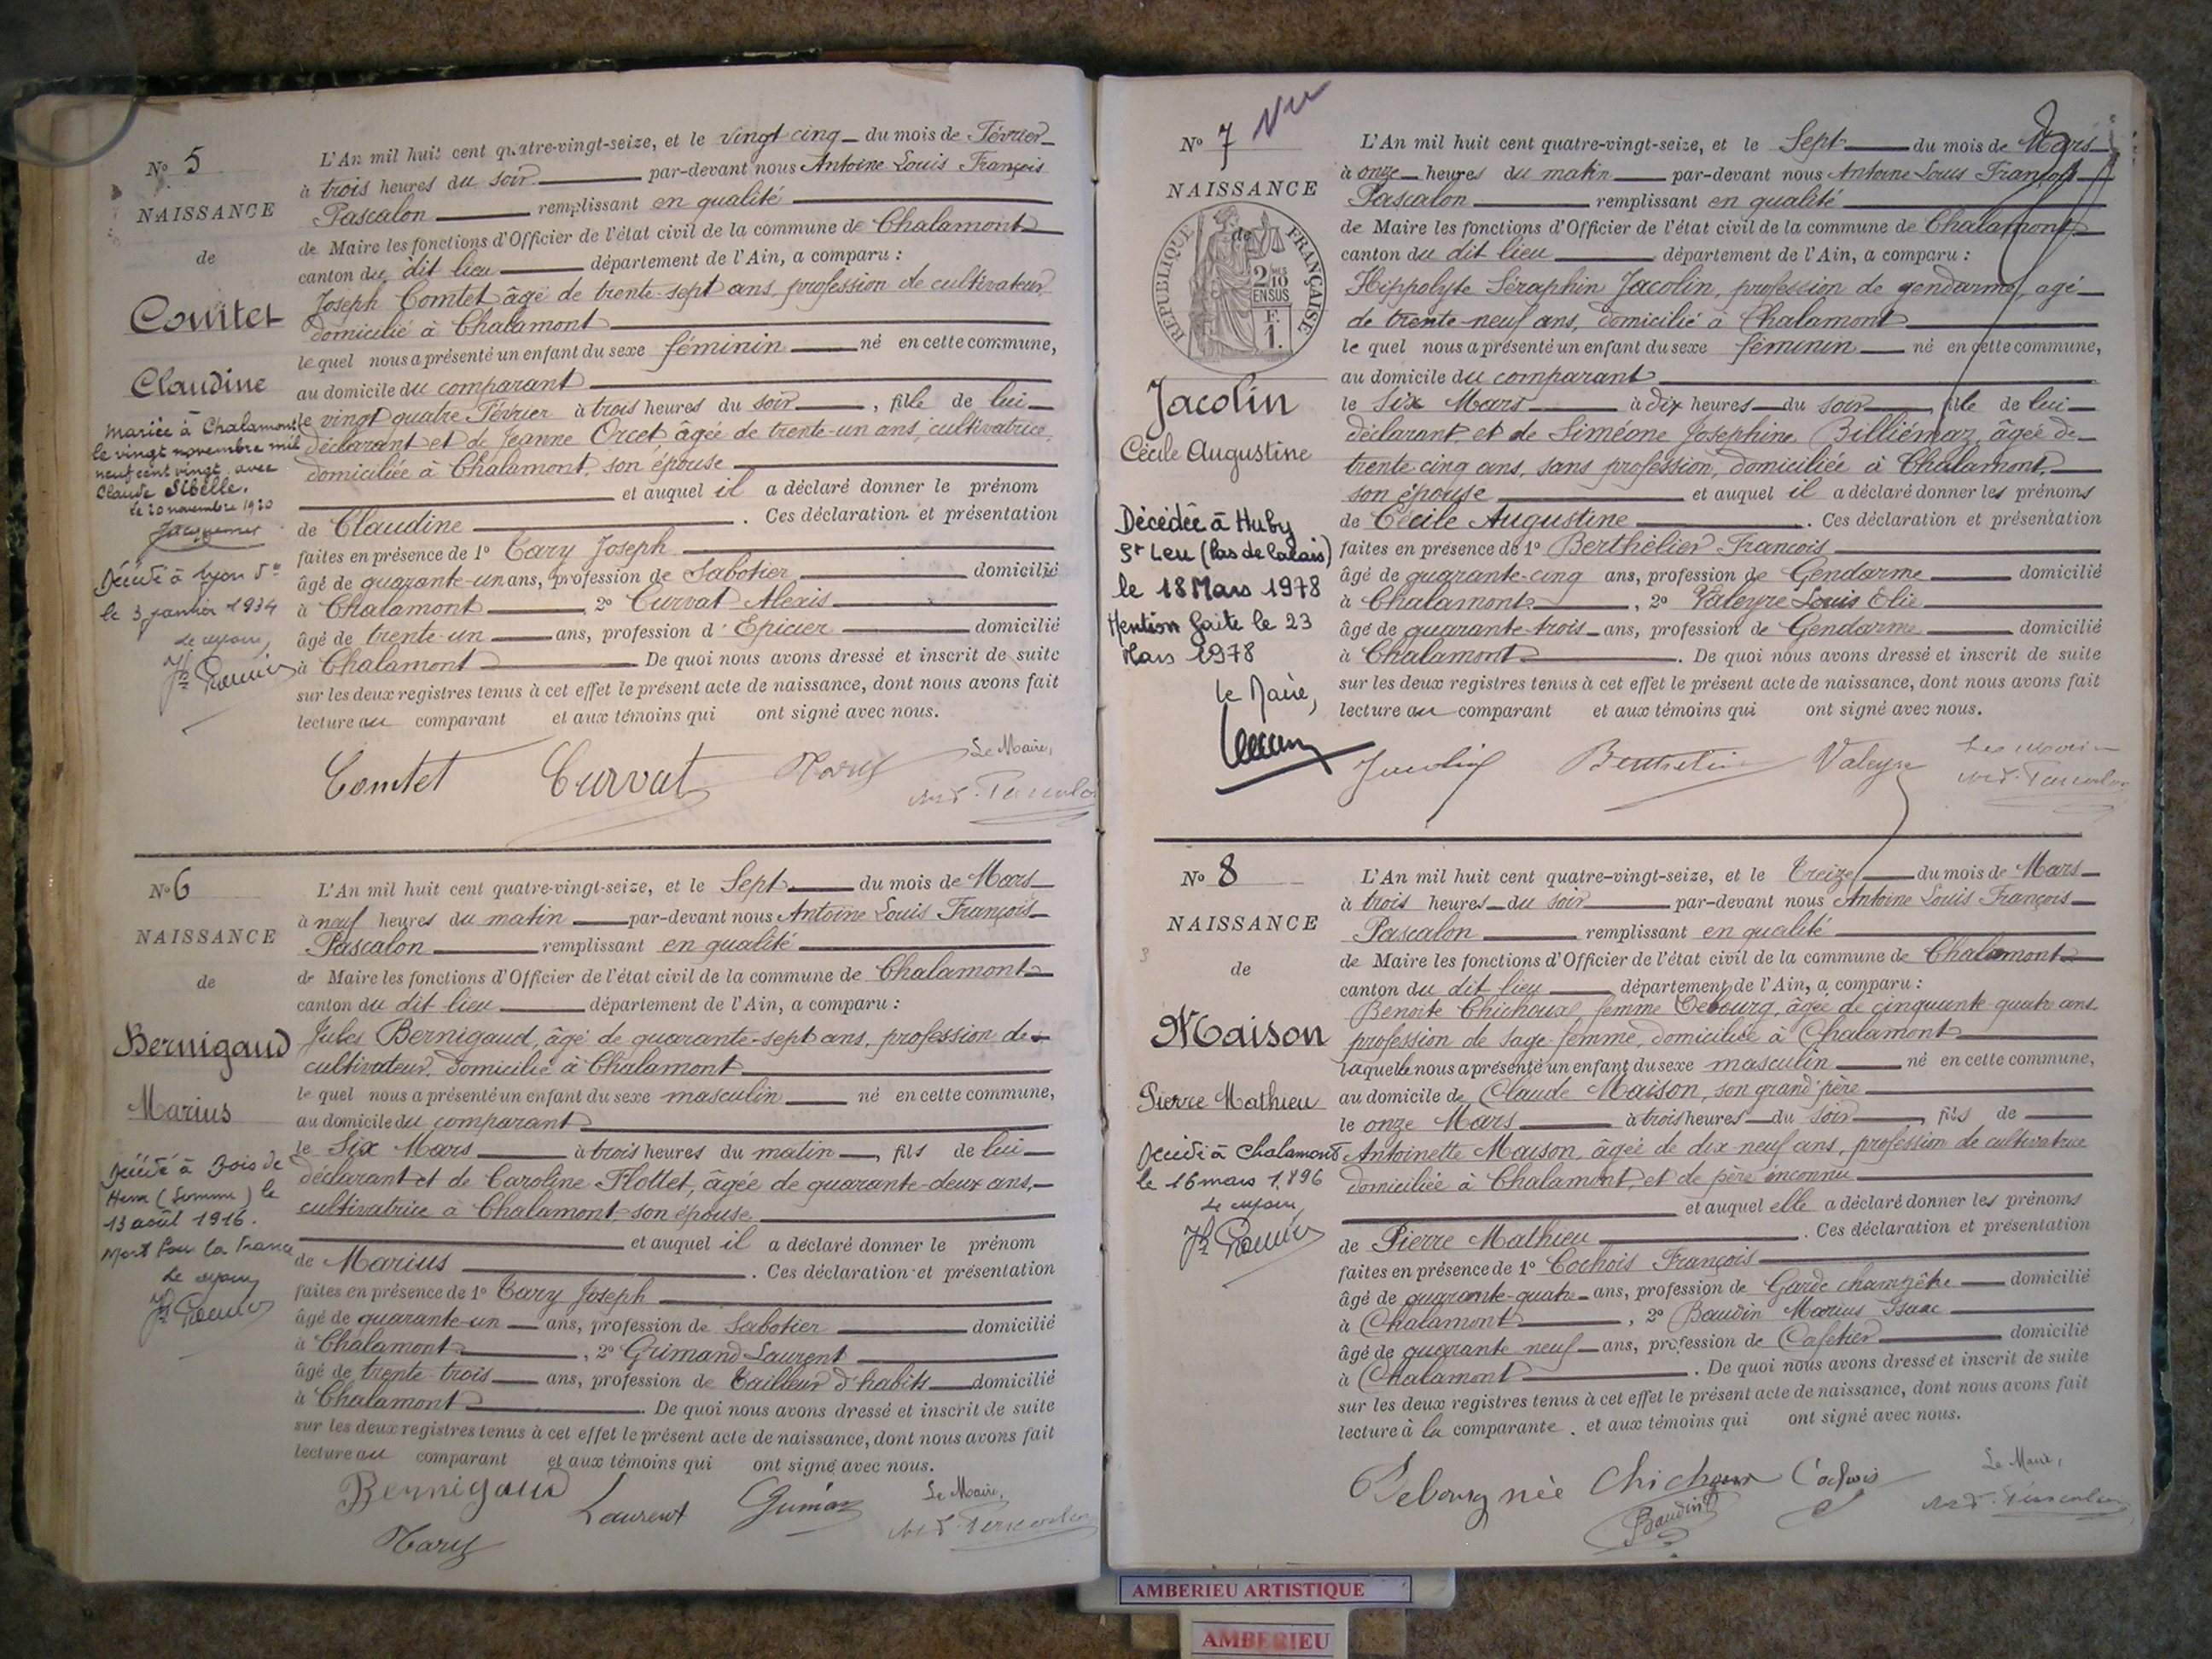 N° 5
NAISSANCE
de
Comtet
Claudine
mariée à Chalamont
le vingt novembre mil
neuf cent vingt avec
Claude Sibelle.
le 20 novembre 1920
Décédé à Lyon 5e
le 3 janvier 1934
Le Maire,
L'An mil huit cent quatre-vingt-seize, et le vingt cinq du mois de Février
à trois heures du soir par-devant nous Antoine Louis François
Pascalon remplissant en qualité
de Maire les fonctions d'Officier de l'état civil de la commune de Chalamont
canton du dit lieu département de l'Ain, a comparu :
Joseph Comtet âgé de trente-sept ans, profession de cultivateur
domicilié à Chalamont
lequel nous a présenté un enfant du sexe féminin né en cette commune,
au domicile du comparant
le vingt quatre Février à trois heures du soir, fille de lui
déclarant et de Jeanne Orcet, âgée de trente-un ans, cultivatrice,
domiciliée à Chalamont, son épouse
et auquel il a déclaré donner le prénom
de Claudine. Ces déclaration et présentation
faites en présence de 1° Tary Joseph
âgé de quarante-un ans, profession de Sabotier domicilié
à Chalamont, 2° Curvat Alexis
âgé de trente-un ans, profession d'Epicier domicilié
à Chalamont De quoi nous avons dressé et inscrit de suite
sur les deux registres tenus à cet effet le présent acte de naissance, dont nous avons fait
lecture au comparant et aux témoins qui ont signé avec nous.
Comtet Curvat Tary Le Maire,
N° 6
NAISSANCE
de
Bernigaud
Marius
Décédé à Bois de
Hem (Somme) le
13 août 1916.
Mort Pour la France
Le Maire
L'An mil huit cent quatre-vingt-seize, et le Sept du mois de Mars
à neuf heures du matin par-devant nous Antoine Louis François
Pascalon remplissant en qualité
de Maire les fonctions d'Officier de l'état civil de la commune de Chalamont
canton du dit lieu département de l'Ain, a comparu :
Jules Bernigaud, âgé de quarante-sept ans, profession de
cultivateur, domicilié à Chalamont
lequel nous a présenté un enfant du sexe masculin né en cette commune,
au domicile du comparant
le Six Mars à trois heures du matin, fils de lui
déclarant et de Caroline Flottet, âgée de quarante-deux ans,
cultivatrice à Chalamont, son épouse
et auquel il a déclaré donner le prénom
de Marius. Ces déclaration et présentation
faites en présence de 1° Tary Joseph
âgé de quarante-un ans, profession de Sabotier domicilié
à Chalamont, 2° Grimand Laurent
âgé de trente trois ans, profession de Tailleur d'habits domicilié
à Chalamont. De quoi nous avons dressé et inscrit de suite
sur les deux registres tenus à cet effet le présent acte de naissance, dont nous avons fait
lecture au comparant et aux témoins qui ont signé avec nous.
Bernigaud Laurent Le Maire,
Tary
N° 7 Vu
NAISSANCE
de
REPUBLIQUE FRANÇAISE
2/10 EN SUS
F. 1.
Jacolin
Cécile Augustine
Décédée à Huby
St Leu (Pas de Calais)
le 18 Mars 1978
Mention faite le 23
Mars 1978
Le Maire,
L'An mil huit cent quatre-vingt-seize, et le Sept du mois de Mars
à onze heures du matin par-devant nous Antoine Louis François
Pascalon remplissant en qualité
de Maire les fonctions d'Officier de l'état civil de la commune de Chalamont
canton du dit lieu département de l'Ain, a comparu :
Hippolyte Séraphin Jacolin, profession de gendarme, âgé
de trente-neuf ans, domicilié à Chalamont
lequel nous a présenté un enfant du sexe féminin né en cette commune,
au domicile du comparant
le Six Mars à dix heures du soir, fille de lui
déclarant et de Siméone Josephine Billiémaz, âgée de
trente-cinq ans, sans profession, domiciliée à Chalamont,
son épouse et auquel il a déclaré donner les prénoms
de Cécile Augustine. Ces déclaration et présentation
faites en présence de 1° Berthelier François
âgé de quarante-cinq ans, profession de Gendarme domicilié
à Chalamont, 2° Valeyre Louis Elie
âgé de quarante-trois ans, profession de Gendarme domicilié
à Chalamont. De quoi nous avons dressé et inscrit de suite
sur les deux registres tenus à cet effet le présent acte de naissance, dont nous avons fait
lecture au comparant et aux témoins qui ont signé avec nous.
Jacolin Berthelier Valeyre Le Maire
N° 8
NAISSANCE
de
Maison
Pierre Mathieu
Décédé à Chalamont
le 16 mars 1896
Le Maire
L'An mil huit cent quatre-vingt-seize, et le Treize du mois de Mars
à trois heures du soir par-devant nous Antoine Louis François
Pascalon remplissant en qualité
de Maire les fonctions d'Officier de l'état civil de la commune de Chalamont
canton du dit lieu département de l'Ain, a comparu :
Benoîte Chichoux, femme Debourg, âgée de cinquante-quatre ans
profession de sage-femme, domiciliée à Chalamont
laquelle nous a présenté un enfant du sexe masculin né en cette commune,
au domicile de Claude Maison, son grand'père
le onze Mars à trois heures du soir, fils de
Antoinette Maison, âgée de dix-neuf ans, profession de cultivatrice
domiciliée à Chalamont, et de père inconnu
et auquel elle a déclaré donner les prénoms
de Pierre Mathieu. Ces déclaration et présentation
faites en présence de 1° Cochois François
âgé de quarante-quatre ans, profession de Garde champêtre domicilié
à Chalamont, 2° Baudin Marius Isaac
âgé de quarante neuf ans, profession de Cafetier domicilié
à Chalamont. De quoi nous avons dressé et inscrit de suite
sur les deux registres tenus à cet effet le présent acte de naissance, dont nous avons fait
lecture à la comparante. et aux témoins qui ont signé avec nous.
Debourg née Chichoux Cochois Le Maire,
Baudin
AMBERIEU ARTISTIQUE
AMBERIEU